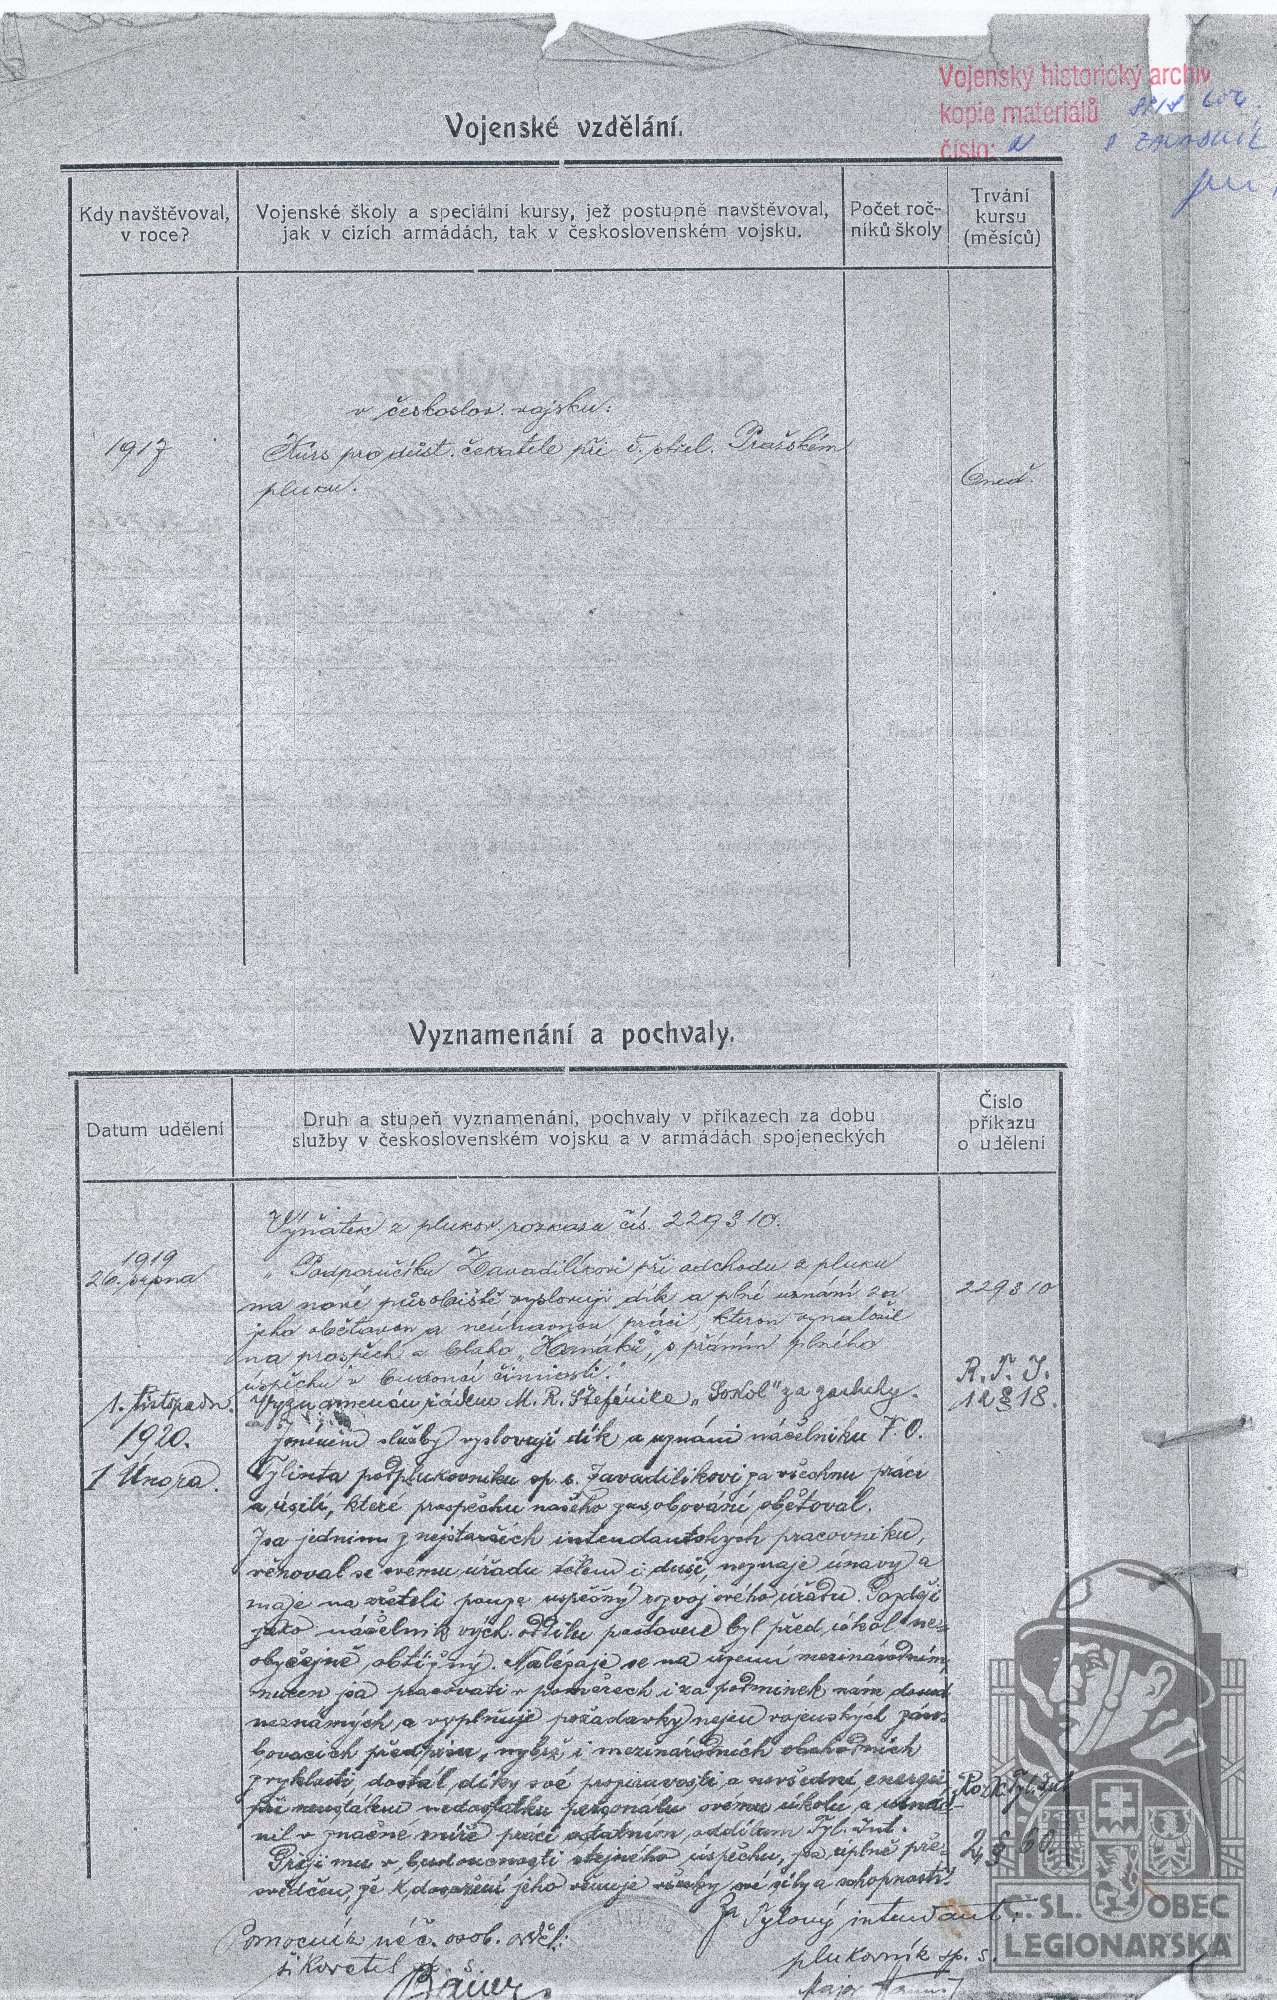 Vojenský historický archiv
kopie materiálů
číslo:
Vojenské vzdělání.
Kdy navštěvoval, v roce?
Vojenské školy a speciální kursy, jež postupně navštěvoval,
jak v cizích armádách, tak v československém vojsku.
Počet roč-
níků školy
Trvání
kursu
(měsíců)
v českoslov. vojsku:
1917
Kurs pro důst. čekatele při č. střel. Pražském
pluku.
6 ned.
Vyznamenání a pochvaly.
Datum udělení
Druh a stupeň vyznamenání, pochvaly v příkazech za dobu
služby v československém vojsku a v armádách spojeneckých
Číslo
příkazu
o udělení
Výňatek z plukov. rozkazu čís. 229 § 10.
1919
26. srpna
"Podporučíku Zavadilíkovi při odchodu z pluku
229 § 10
na nové působiště vyslovuji dík a plné uznání za
jeho obětavou a neúnavnou práci, kterou vynaložil
na prospěch a blaho "Hanáků", s přáním plného
úspěchu v budoucí činnosti."
R. T. I.
1. listopadu.
Vyznamenán řádem M. R. Štefánika "Sokol" za zásluhy.
12 § 18.
1920.
Jménem služby vyslovuji dík a uznání náčelníku V. O.
1 Února.
Tylinta podplukovníku sp. s. Zavadilíkovi za všechnu práci
a úsilí, které prospěchu našeho zasobování obětoval.
Jsa jedním z nejstarších intendantských pracovníků,
věnoval se svému úřadu tělem i duší, neznaje únavy a
maje na zřeteli pouze úspěšný rozvoj svého úřadu. Později
jako náčelník vých. oddílu postaven byl před úkol ne-
obyčejně obtížný. Nalézaje se na území mezinárodním,
nucen jsa pracovati v poměrech i za podmínek nám dosud
neznámých, a vyplňuje požadavky nejen vojenských záso-
bovacích předpisů, nýbrž i mezinárodních obchodních
zvyklostí, dostál, díky své a nevšední energii
při neustálém nedostatku personálu svému úkolu, a usnad-
nil v značné míře práci ostatním oddílům Tyl. Int.
Přeji mu v budoucnosti stejného úspěchu, jsa úplně pře-
svědčen, že k dosažení jeho věnuje všechny své síly a schopnosti.
Rozk. Tyl. Int
2, § 60.
Za Tylový intendant:
Pomocník náč. osob. odděl:
plukovník sp. s.
Bauer
Č. SL. OBEC
LEGIONÁŘSKÁ